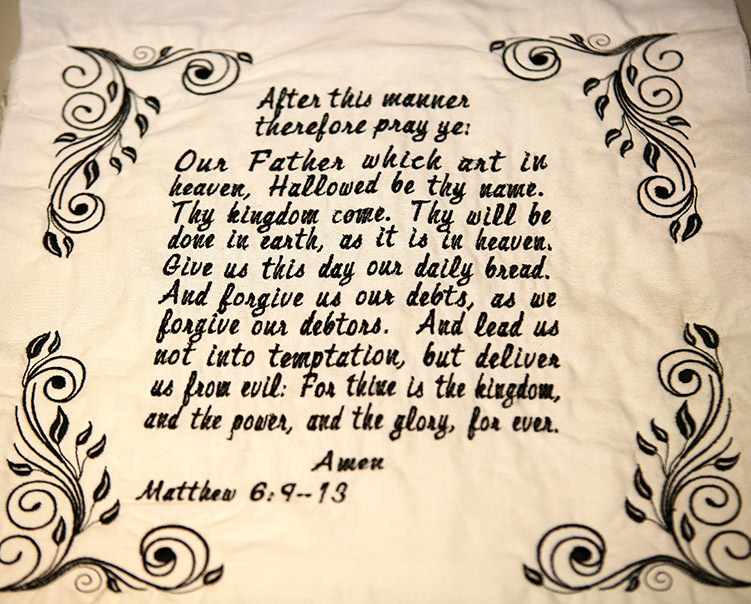 After this manner
therefore pray ye:
Our Father which art in
heaven, Hallowed be thy name.
Thy kingdom come. Thy will be
done in earth, as it is in heaven.
Give us this day our daily bread.
And forgive us our debts, as we
forgive our debtors. And lead us
not into temptation, but deliver
us from evil: For thine is the kingdom,
and the power, and the glory, for ever.
Amen
Matthew 6:9--13